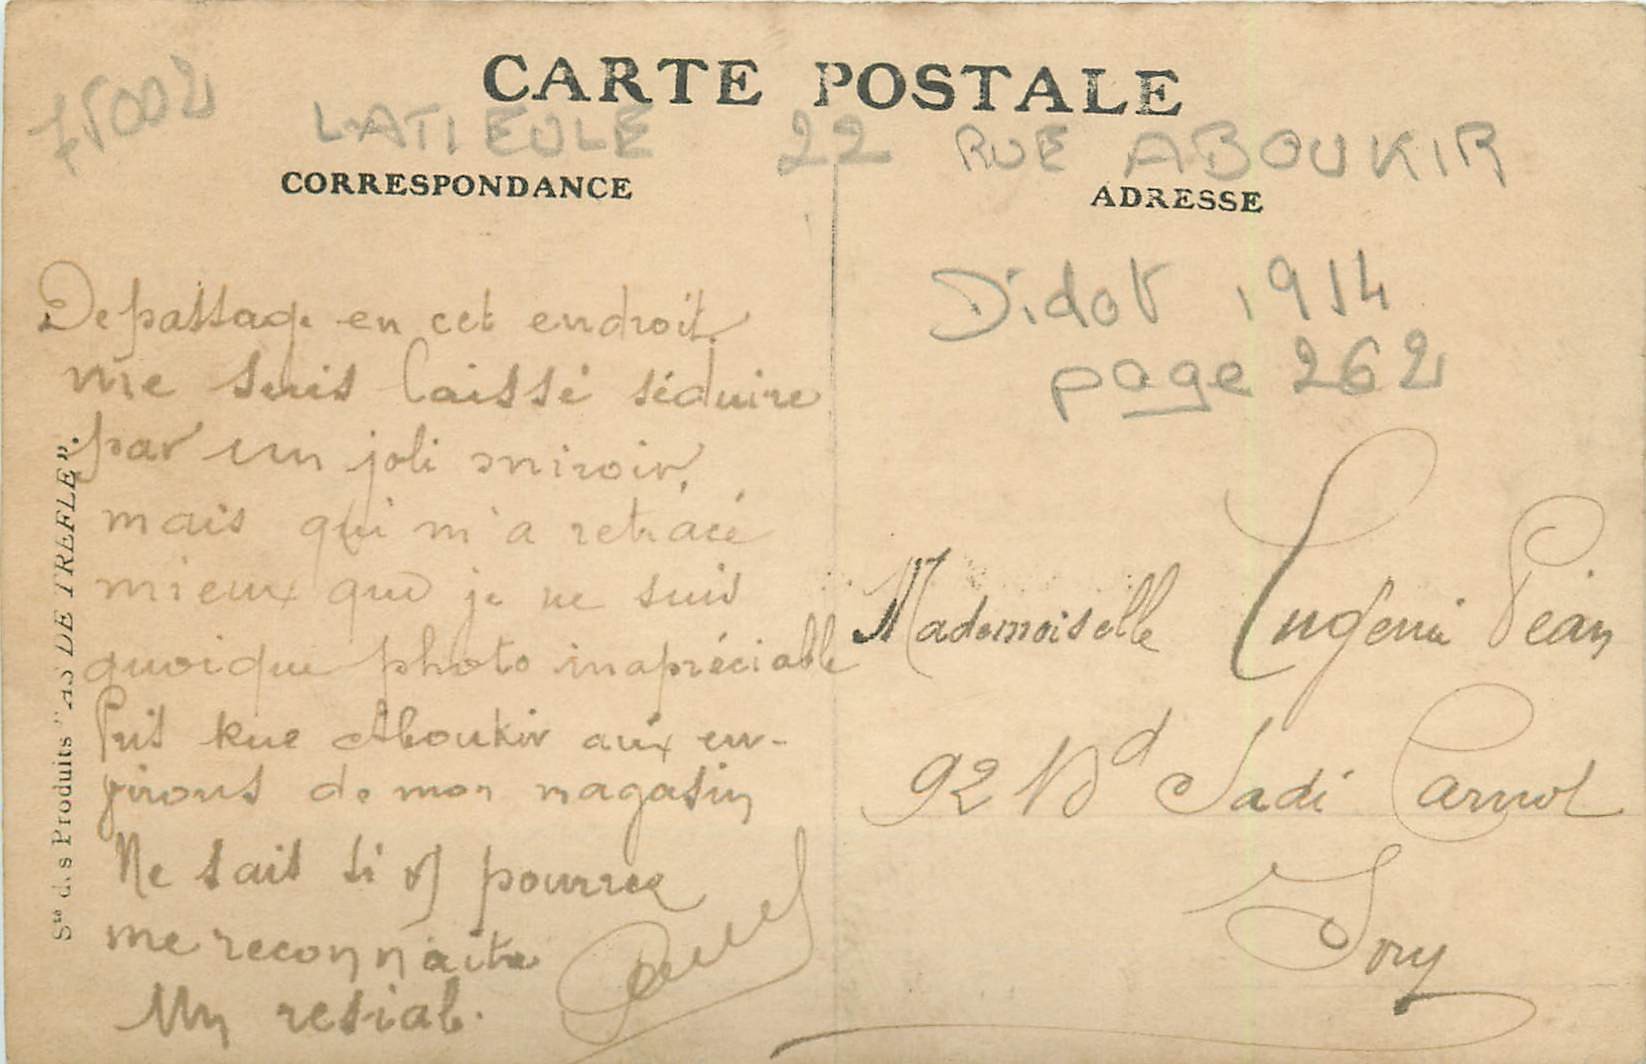 CARTE POSTALE
75002 LATIEULE 22 RUE ABOUKIR
CORRESPONDANCE
ADRESSE
Didot 1914
page 262
De passage en cet endroit
me suis laissé séduire
par un joli miroir,
mais qui m'a retracé
mieux que je ne suis
quoique photo inapréciable
Pris Rue Aboukir aux en-
virons de mon magasin
Ne sait si vs pourrez
me reconnaitre
Un
Mademoiselle Eugenie Péan
92 Bd Sadi Carnot
Ivry
Sté des Produits "AS DE TREFLE".